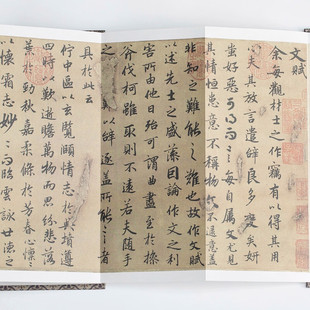 文賦
余每觀材士之作竊有以得其用
心夫其放言遣辭良多變矣妍
蚩好惡可得而言每自屬文尤見
其情恒患意不稱物文不逮意蓋
非知之難能之難也故作文賦
以述先士之盛藻因論作文之利
害所由他日殆可謂曲盡至於操
斧伐柯雖取則不遠若夫隨手
之變良難以辭逮蓋所能言之者
具於此云
佇中區以玄覽頤情志於典墳遵
四時以歎逝瞻萬物而思紛悲落
葉於勁秋嘉柔條於芳春心懍〻
以懷霜志妙〻而臨雲詠世德之